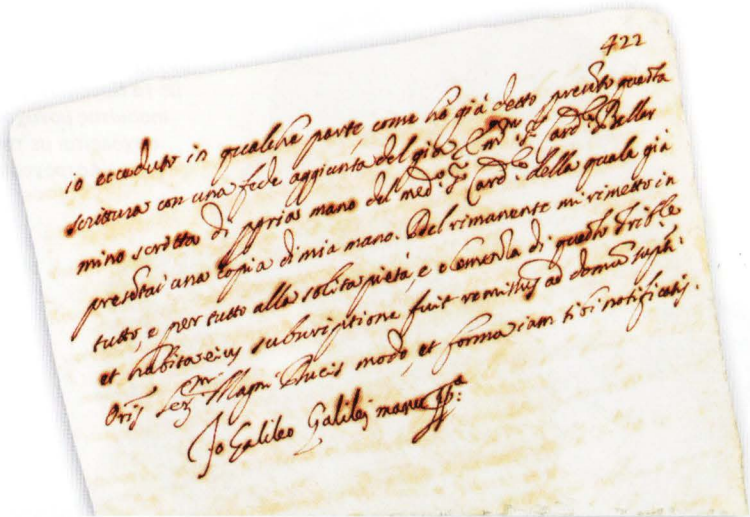 422
io ecceduto in qualche parte, come hò già detto presento questa
scrittura con una fede aggiunta del già Em.mo S.r Card.le Bellar
mino scritta di ppria mano del med.o S.r Card.le della quale già
presentai una copia di mia mano. Del rimanente mi rimetto in
tutto, e per tutto alla solita pietà, e clemenza di questo Trib.le
et habita eius subscriptione fuit remissus ad domum supti
Oris Ser.mi Magni Ducis modo, et forma iam sibi notificatis.
Io Galileo Galilei manu pp.a